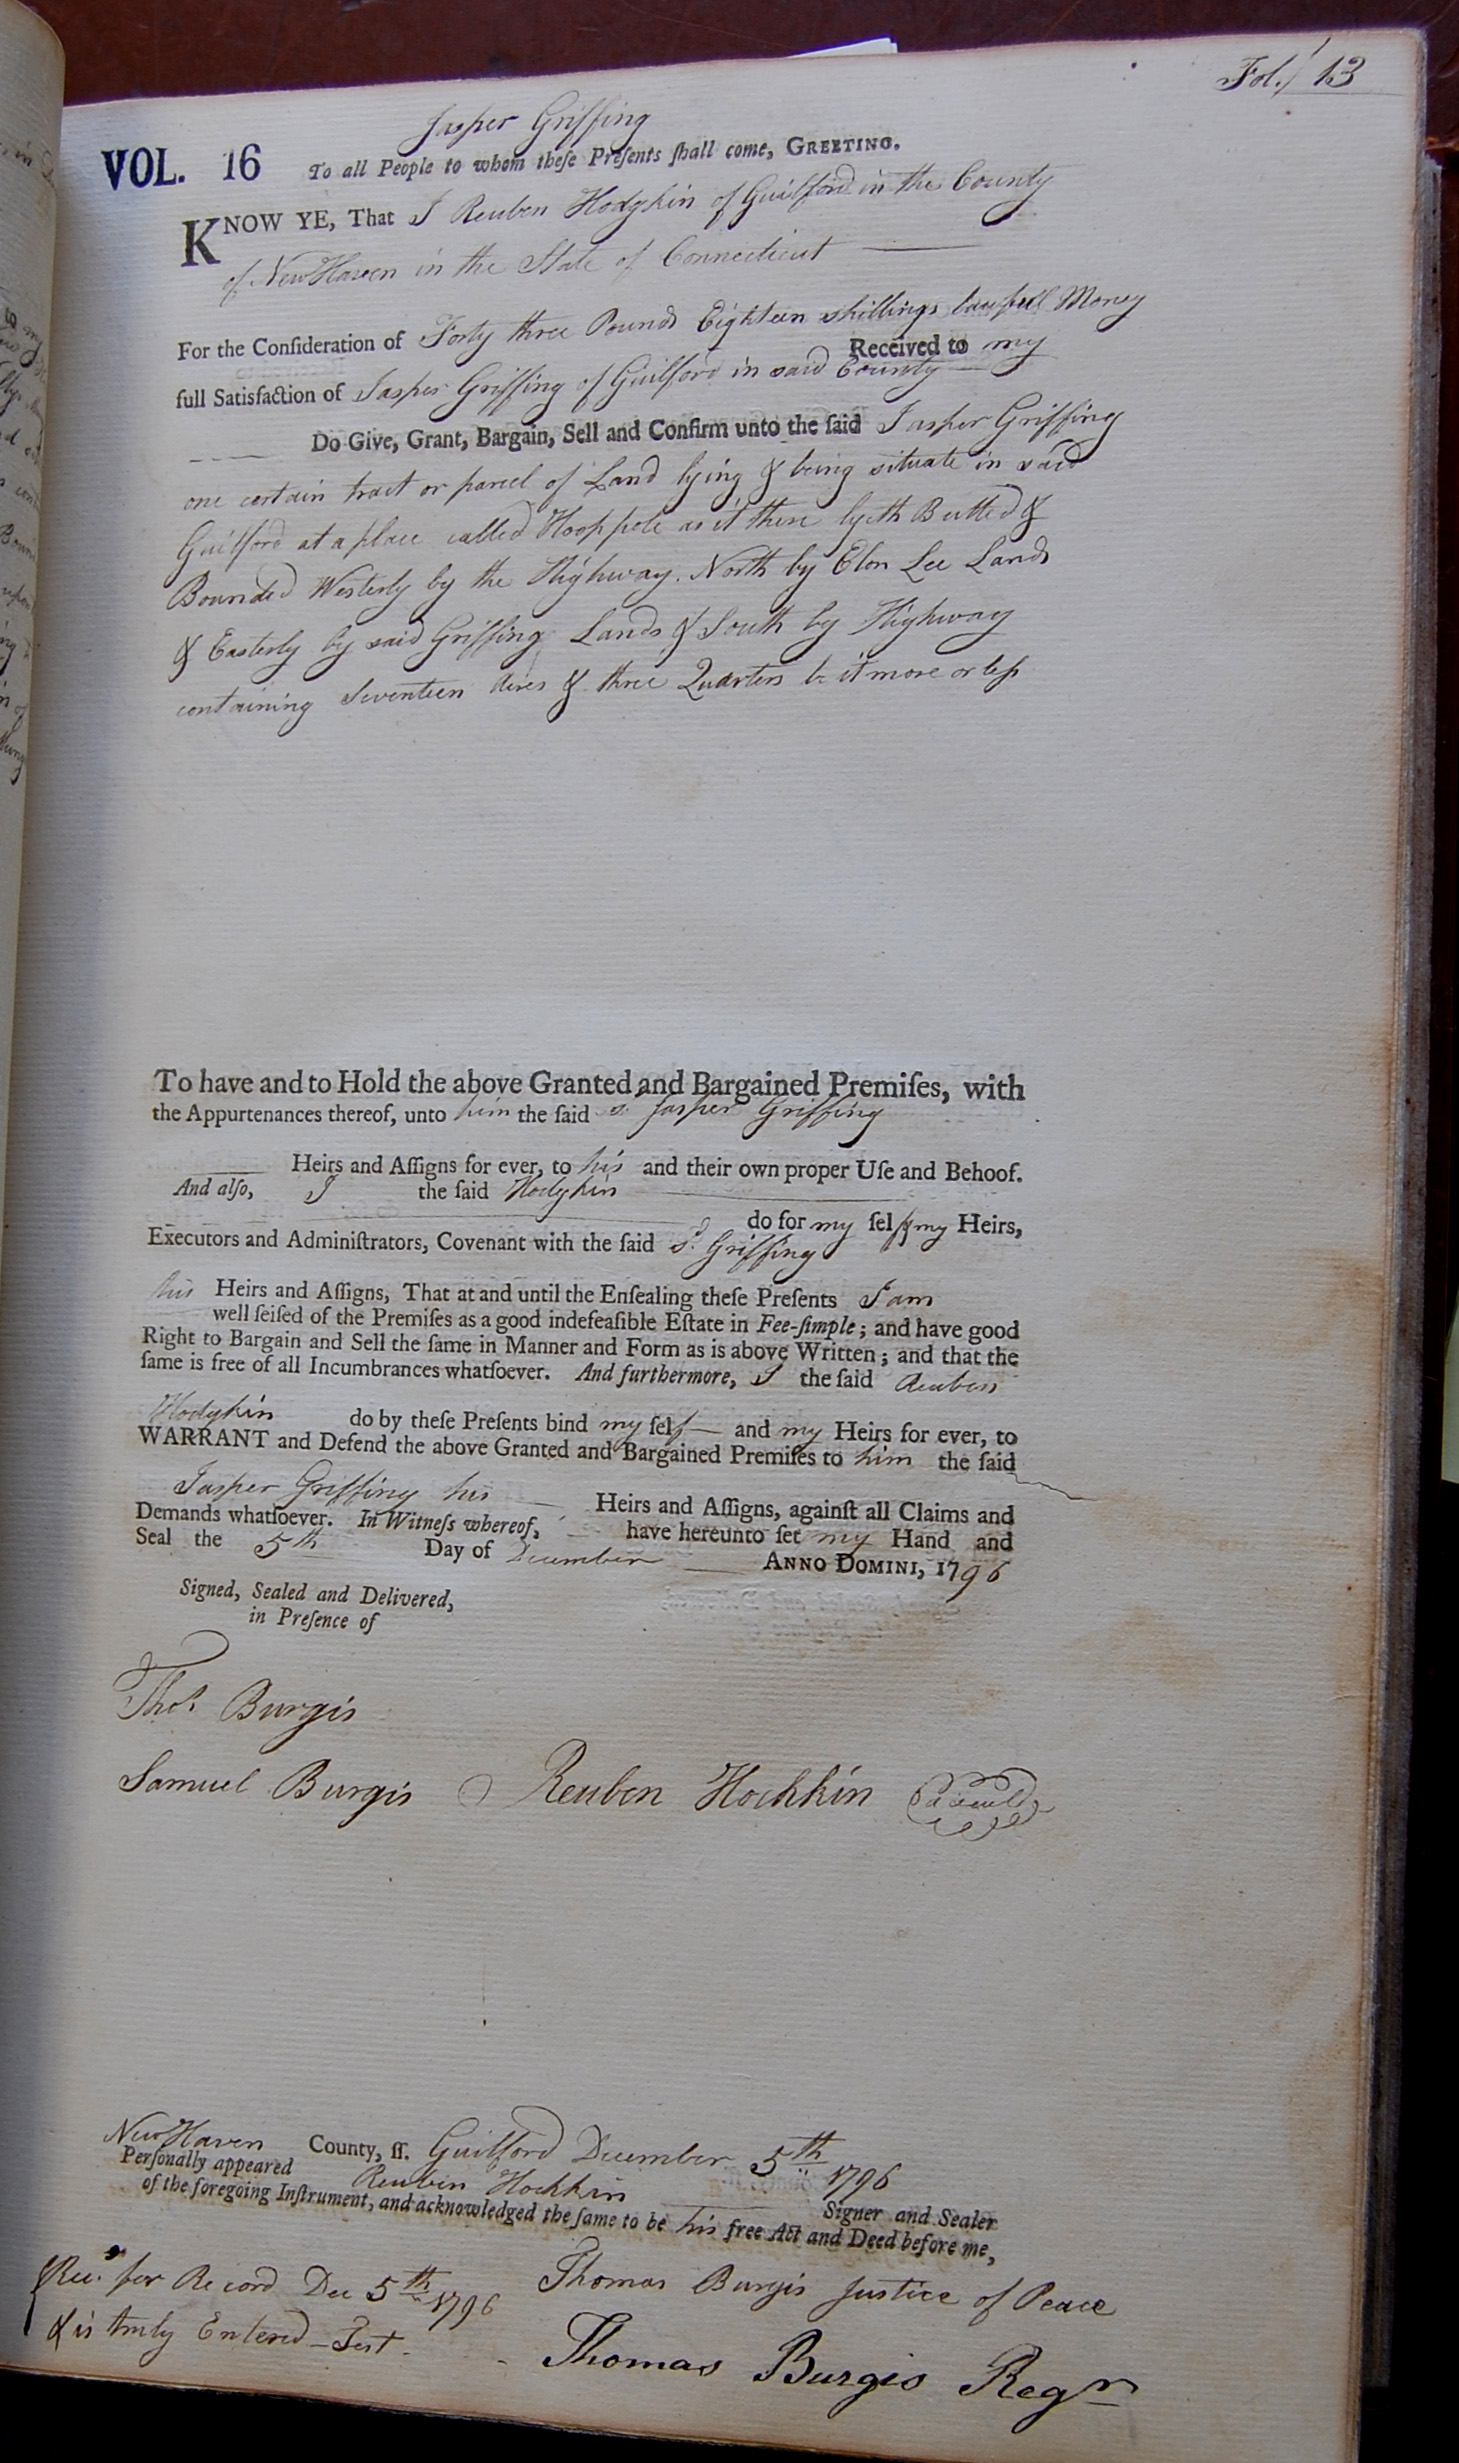 Fol. 13
Jasper Griffing
VOL. 16 To all People to whom theſe Preſents ſhall come, GREETING.
KNOW YE, That I Reuben Hodgkin of Guilford in the County
of New Haven in the State of Connecticut
For the Conſideration of Forty three Pounds Eighteen shillings lawfull Money
Received to my
full Satisfaction of Jasper Griffing of Guilford in said County
Do Give, Grant, Bargain, Sell and Confirm unto the ſaid Jasper Griffing
one certain tract or parcel of Land lying & being situate in said
Guilford at a place called Hooppole as it there lyeth Butted &
Bounded Westerly by the Highway. North by Elon Lee Lands
& Easterly by said Griffing Lands & South by Highway
containing Seventeen Acres & three Quarters be it more or less
To have and to Hold the above Granted and Bargained Premiſes, with
the Appurtenances thereof, unto him the ſaid sd Jasper Griffing
Heirs and Aſſigns for ever, to his and their own proper Uſe and Behoof.
And alſo, I the ſaid Hodgkin
do for my ſelf & my Heirs,
Executors and Adminiſtrators, Covenant with the ſaid sd Griffing
his Heirs and Aſſigns, That at and until the Enſealing theſe Preſents I am
well ſeiſed of the Premiſes as a good indefeaſible Eſtate in Fee-ſimple; and have good
Right to Bargain and Sell the ſame in Manner and Form as is above Written; and that the
ſame is free of all Incumbrances whatſoever. And furthermore, I the ſaid Reuben
Hodgkin do by theſe Preſents bind my ſelf and my Heirs for ever, to
WARRANT and Defend the above Granted and Bargained Premiſes to him the ſaid
Jasper Griffing his Heirs and Aſſigns, againſt all Claims and
Demands whatſoever. In Witneſs whereof, have hereunto ſet my Hand and
Seal the 5th Day of December ANNO DOMINI, 1796
Signed, Sealed and Delivered,
in Preſence of
Thos Burgis
Samuel Burgis Reuben Hochkin
New Haven County, ſſ. Guilford December 5th 1796
Perſonally appeared Reuben Hochkin Signer and Sealer
of the foregoing Inſtrument, and acknowledged the ſame to be his free Act and Deed before me,
Thomas Burgis Justice of Peace
Recd for Record Dec 5th 1796
& is truly Entered - Test.
Thomas Burgis Regr